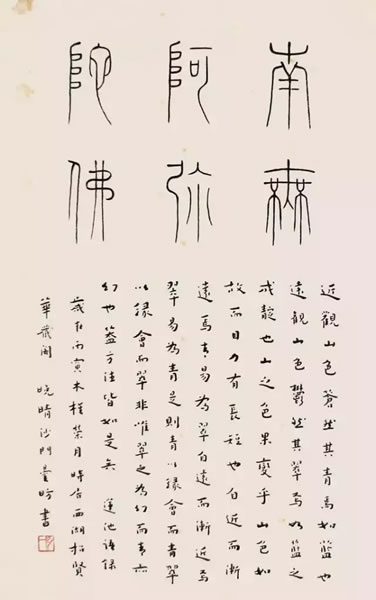 南無
阿弥
陀佛
近觀山色蒼然其青焉如藍也
遠觀山色鬱然其翠焉如藍之
成靛也山之色果變乎山色如
故而目力有長短也自近而漸
遠焉青易為翠自遠而漸近焉
翠易為青是則青以緣會而青翠
以緣會而翠非唯翠之為幻而青亦
幻也蓋万法皆如是矣 蓮池語錄
歲在丙寅木槿榮月時舍西湖招賢
華嚴閣 晚晴沙門曇昉書